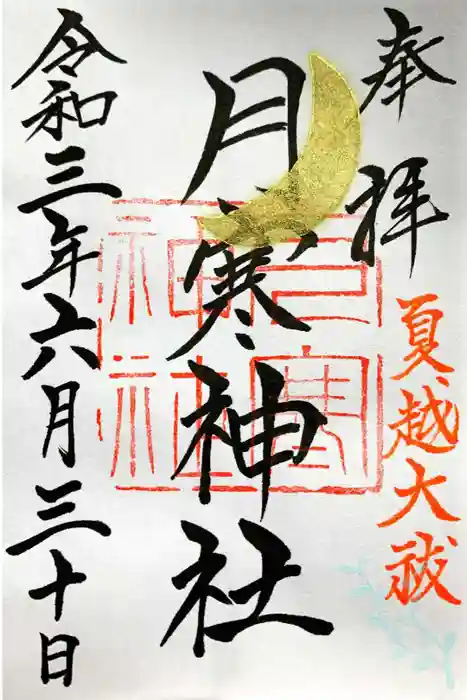 奉拝
夏越大祓
月寒神社
月寒神社
令和三年六月三十日